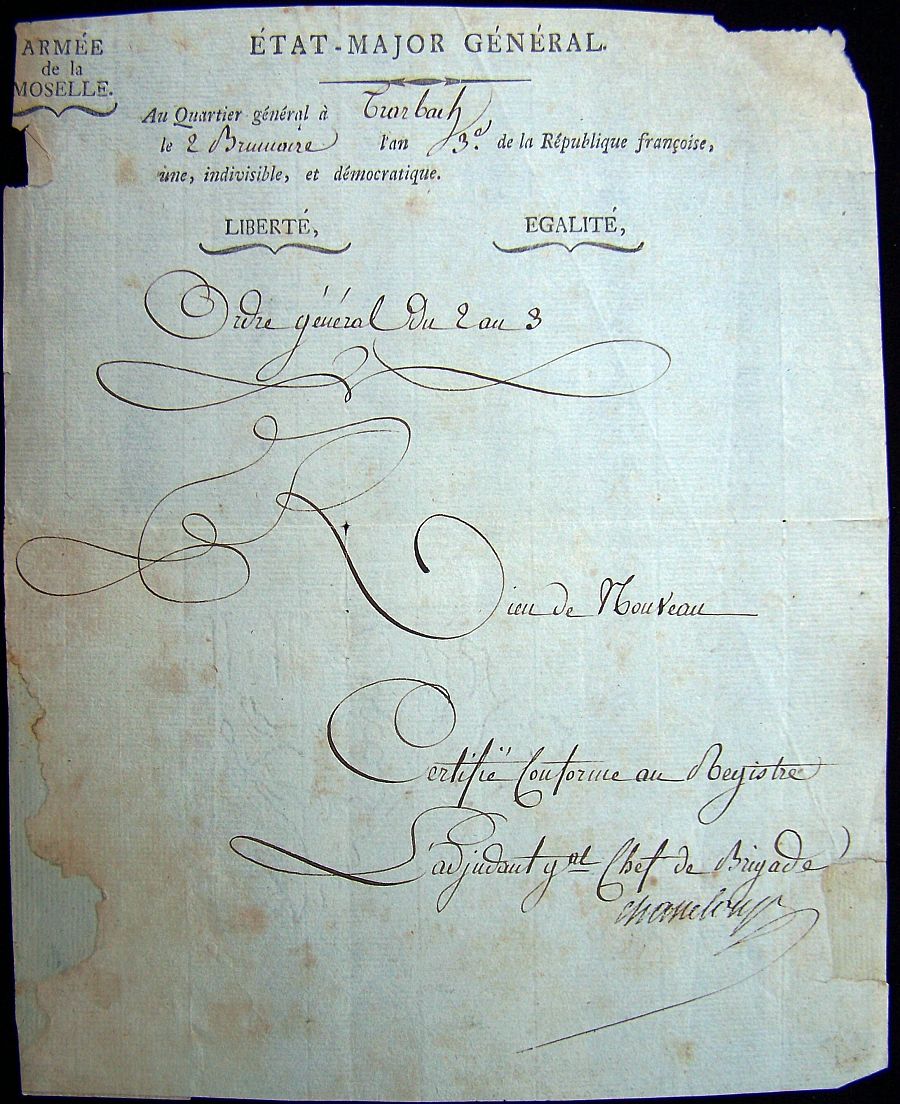 ARMÉE
de la
MOSELLE.
ÉTAT-MAJOR GÉNÉRAL.
Au Quartier général à Trarbach
le 2 Brumaire l'an 3.e de la République françoise,
une, indivisible, et démocratique.
LIBERTÉ, EGALITÉ,
Ordre général du 2 au 3
Rien de Nouveau
Certifié Conforme au Registre
L'adjudant gal Chef de Brigade